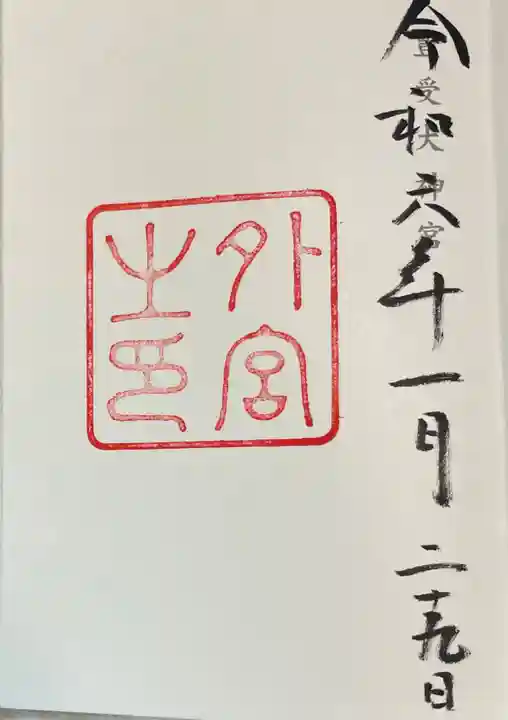 豊受大神宮
令和六年十一月二十九日
外宮
之印